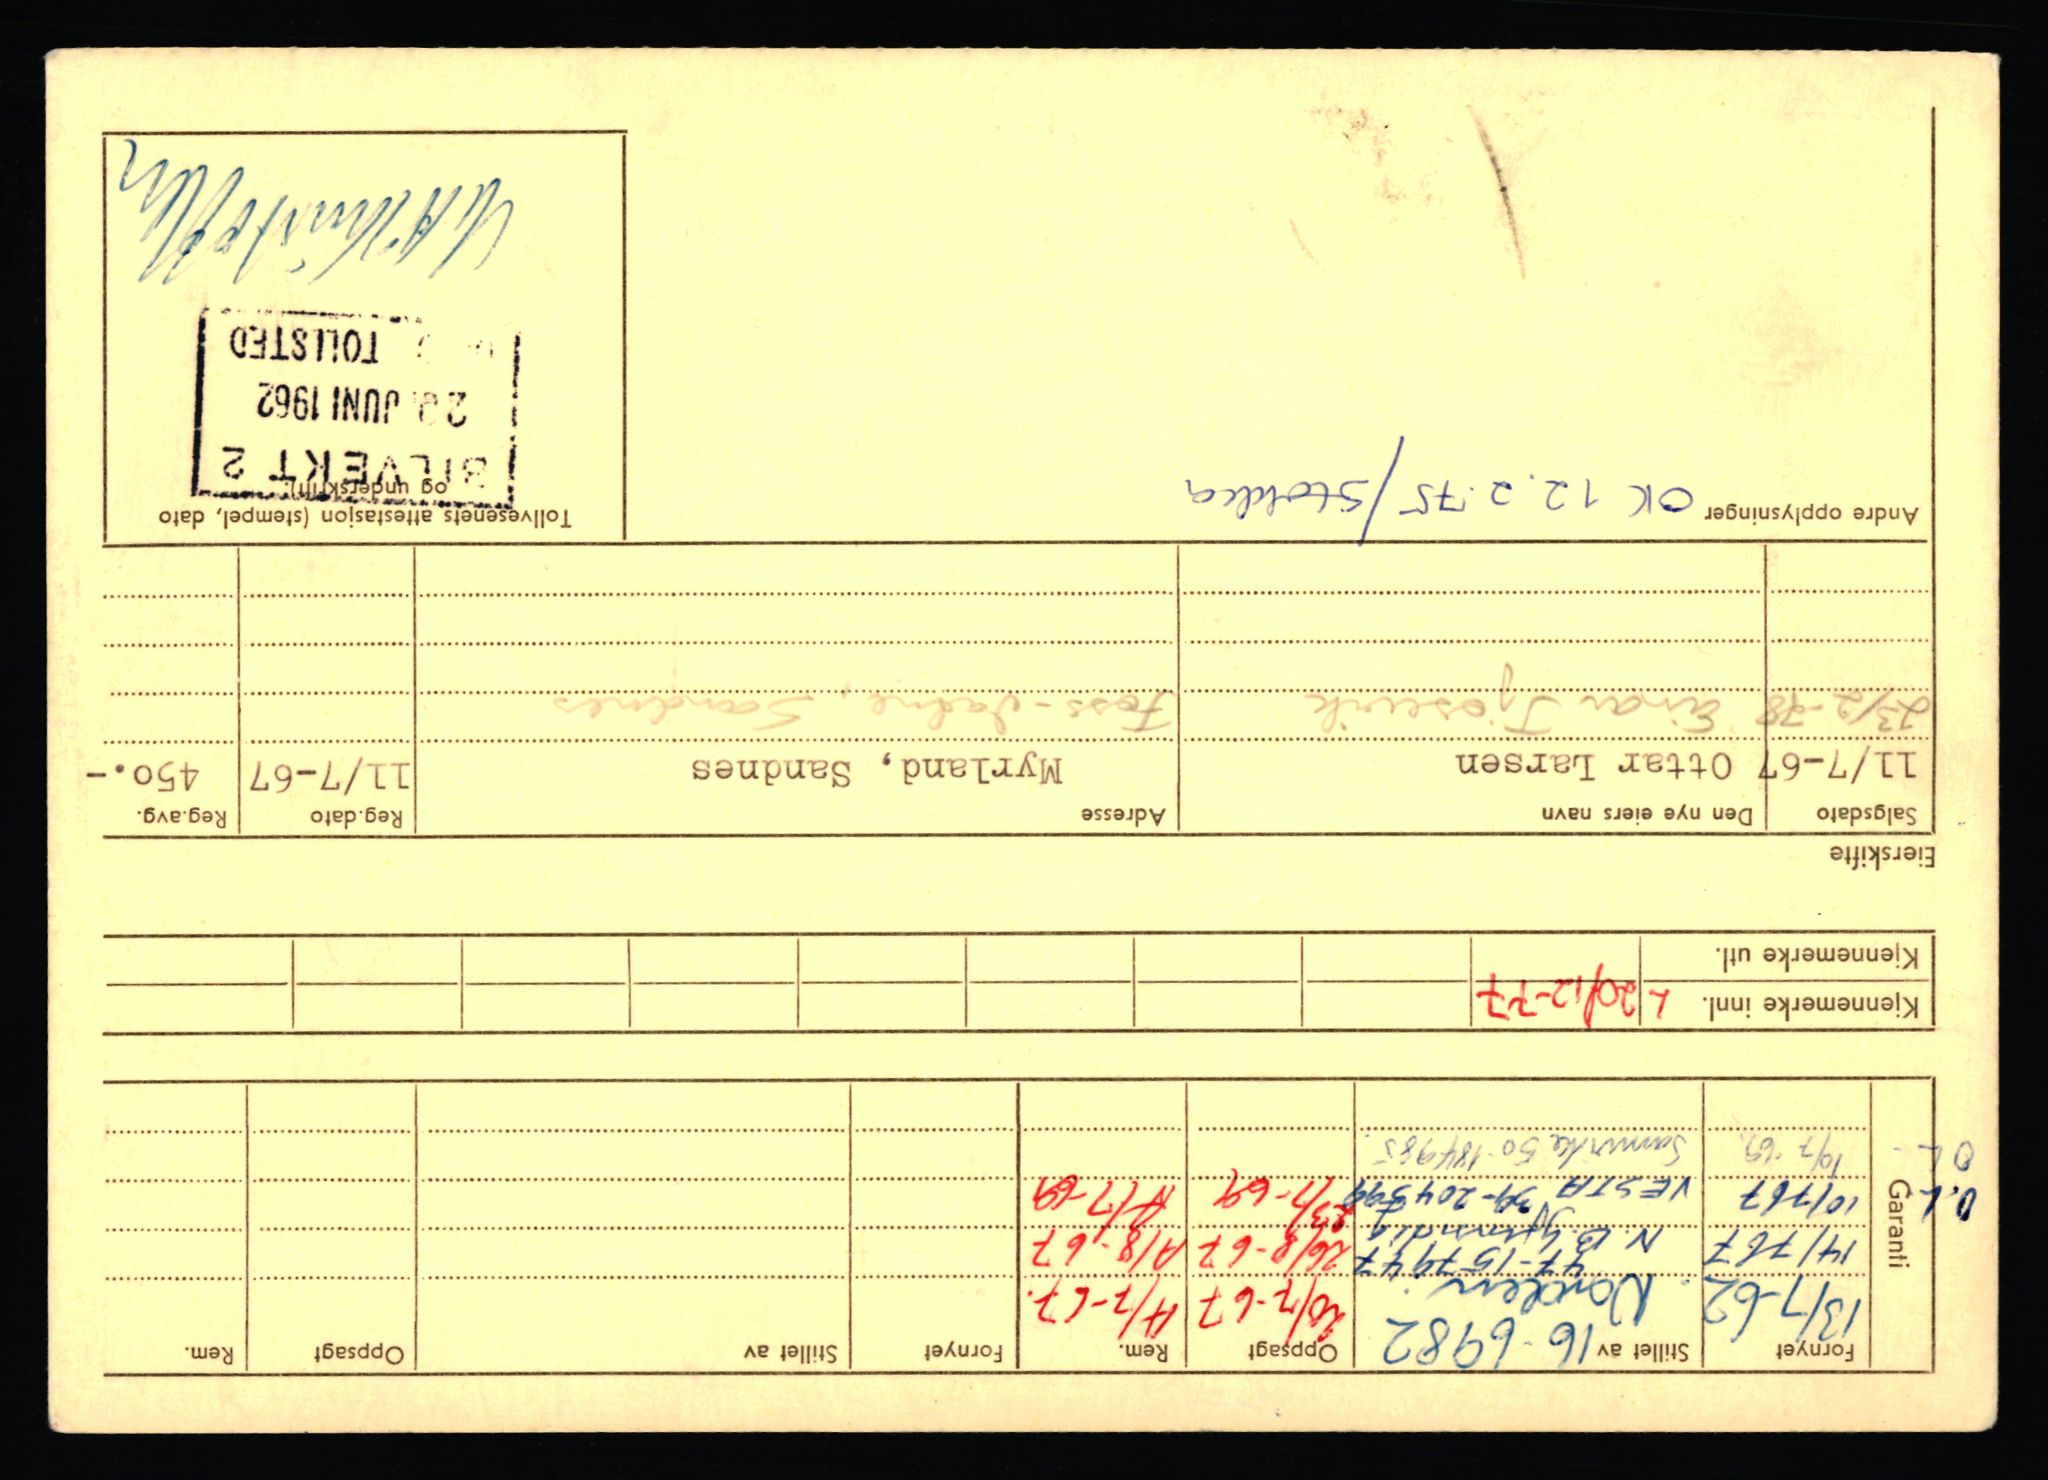 Garanti
Fornyet Stillet av Oppsagt Rem. Fornyet Stillet av Oppsagt Rem.
16-6982
13/7-62 Norden 20/7-67 A/7-67.
47-157947
14/7 67 N.B. Gjensidig 26/8-67 A/8-67
O.L 10/7 67 VESTA 39-204 23/7-69 A/7-69
O L- 10/7-69. Samvirke 50-184985.
Kjennemerke innl. L 20/12-77
Kjennemerke utl.
Eierskifte
Salgsdato Den nye eiers navn Adresse Reg.dato Reg.avg.
11/7-67 Ottar Larsen Myrland, Sandnes 11/7-67 450.-
23/2-78 Einar Tjosevik Foss-, Sandnes
Andre opplysninger OK 12.2.75/
Tollvesenets attestasjon (stempel, dato
og underskrift)
BILVEKT 2
JUNI 1962
TOLLSTED